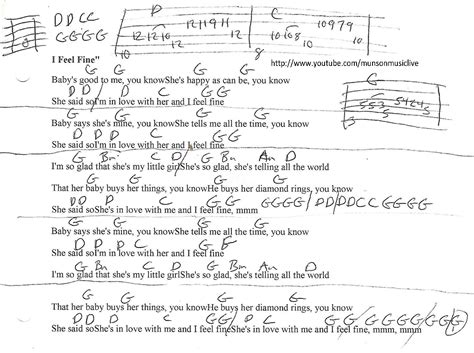 DDCC
GGGG
D
C
12 11 9 11
12 12 10
10
12
10 9 7 9
10 10 8
8
10
http://www.youtube.com/munsonmusiclive
I Feel Fine"
G G G
Baby's good to me, you knowShe's happy as can be, you know
D D D C G G
She said soI'm in love with her and I feel fine
G G G
Baby says she's mine, you knowShe tells me all the time, you know
D D D C G G
She said soI'm in love with her and I feel fine
G Bm C D G Bm Am D
I'm so glad that she's my little girlShe's so glad, she's telling all the world
G G G
That her baby buys her things, you knowHe buys her diamond rings, you know
D D D C G G GGGG/DDDDCC GGGG
She said soShe's in love with me and I feel fine, mmm
G G G
Baby says she's mine, you knowShe tells me all the time, you know
D D D C G
She said soI'm in love with her and I feel fine
G Bm C D G Bm Am D
I'm so glad that she's my little girlShe's so glad, she's telling all the world
G G G
That her baby buys her things, you knowHe buys her diamond rings, you know
She said soShe's in love with me and I feel fineShe's in love with me and I feel fine, mmm, mmm